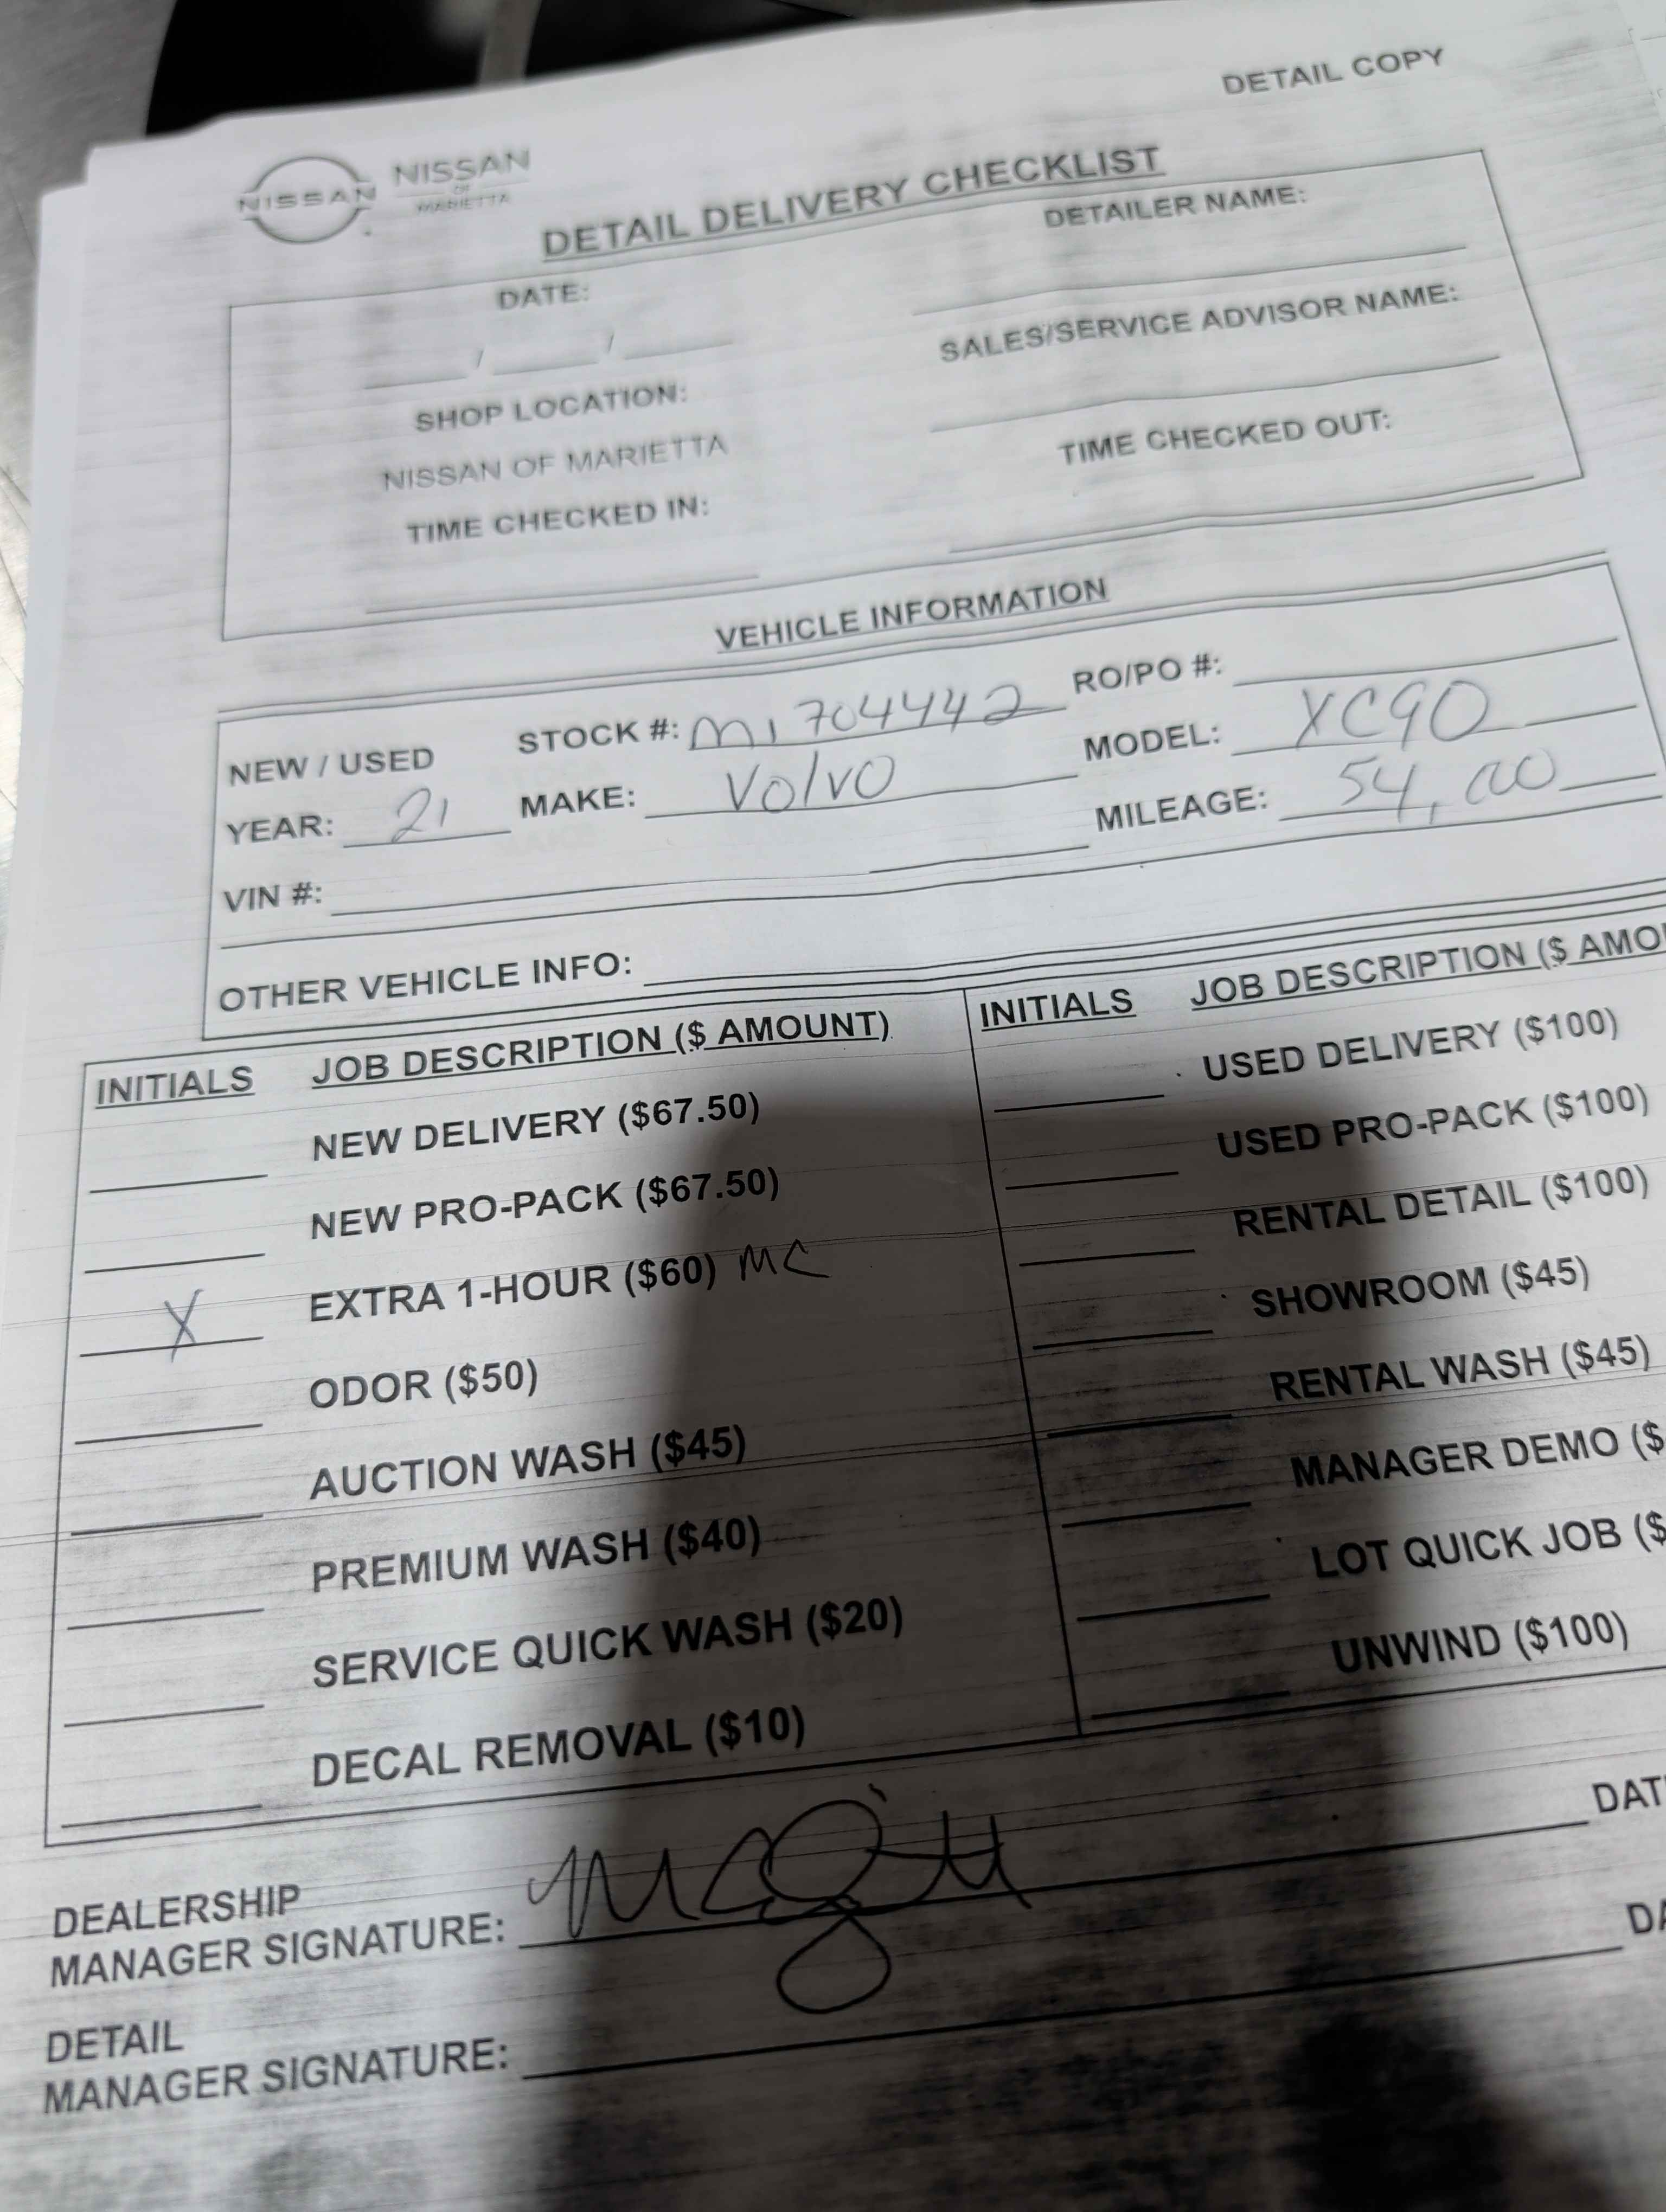 DETAIL COPY
NISSAN NISSAN
OF
MARIETTA
DETAIL DELIVERY CHECKLIST
DATE:
/ /
DETAILER NAME:
SHOP LOCATION:
NISSAN OF MARIETTA
SALES/SERVICE ADVISOR NAME:
TIME CHECKED IN:
TIME CHECKED OUT:
VEHICLE INFORMATION
NEW / USED STOCK #: M1704442 RO/PO #:
YEAR: 21 MAKE: VOLVO MODEL: XC90
VIN #: MILEAGE: 54,
OTHER VEHICLE INFO:
INITIALS JOB DESCRIPTION ($ AMOUNT)
NEW DELIVERY ($67.50)
NEW PRO-PACK ($67.50)
X EXTRA 1-HOUR ($60) MC
ODOR ($50)
AUCTION WASH ($45)
PREMIUM WASH ($40)
SERVICE QUICK WASH ($20)
DECAL REMOVAL ($10)
INITIALS JOB DESCRIPTION ($ AMO
USED DELIVERY ($100)
USED PRO-PACK ($100)
RENTAL DETAIL ($100)
SHOWROOM ($45)
RENTAL WASH ($45)
MANAGER DEMO ($
LOT QUICK JOB ($
UNWIND ($100)
DEALERSHIP
MANAGER SIGNATURE: DAT
DETAIL
MANAGER SIGNATURE: DA